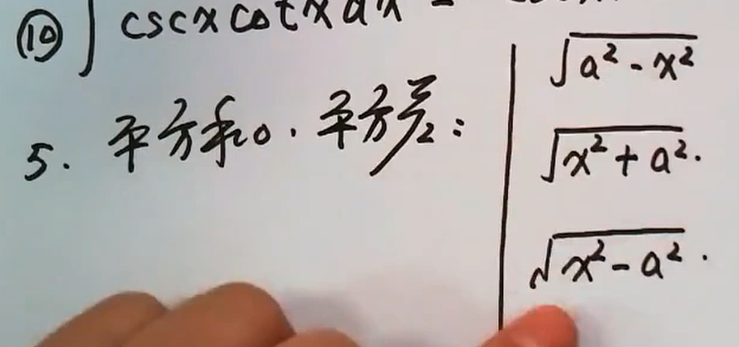 ⑩ ∫ cscx cotx dx =
5. 平方和. 平方差:
√(a² - x²)
√(x² + a²).
√(x² - a²).